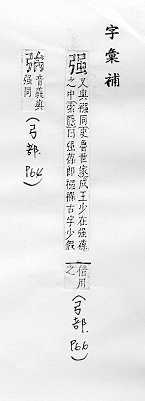 字彙補
强又與襁同史魯世家成王少在强葆
之中索隱曰强葆即襁褓古字少假
借用
之
(弓部.P66)
音義與
强同
(弓部.P64)